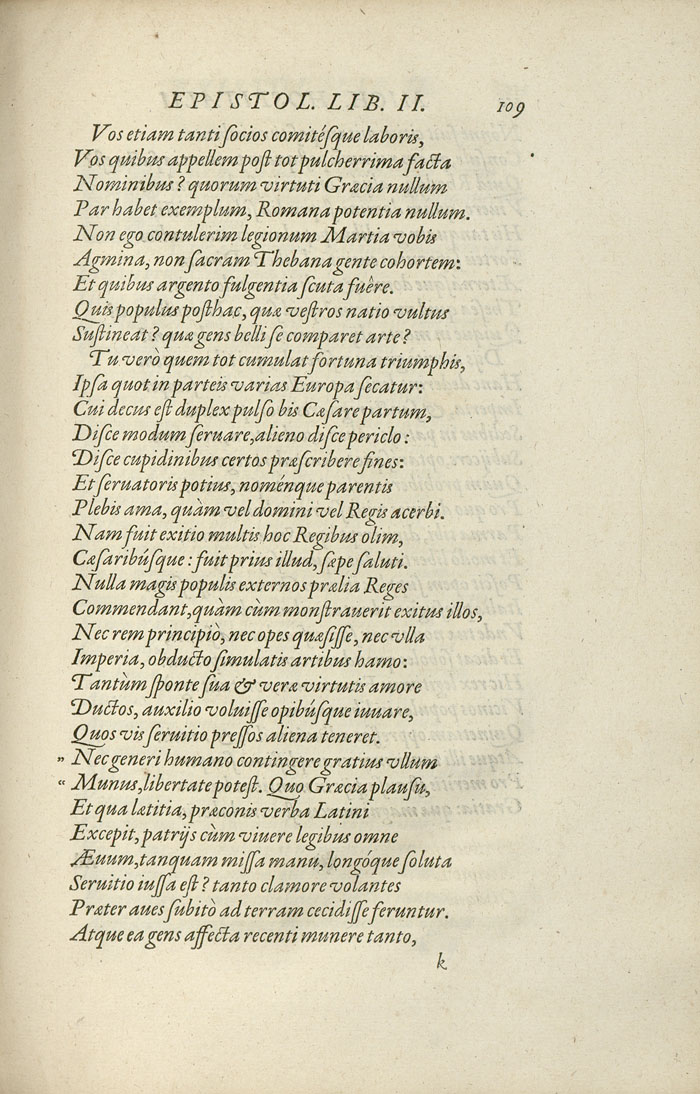 EPISTOL. LIB. II. 109
Vos etiam tanti socios comitésque laboris,
Vos quibus appellem post tot pulcherrima facta
Nominibus? quorum virtuti Græcia nullum
Par habet exemplum, Romana potentia nullum.
Non ego contulerim legionum Martia vobis
Agmina, non sacram Thebana gente cohortem:
Et quibus argento fulgentia scuta fuêre.
Quis populus posthac, quæ vestros natio vultus
Sustineat? quæ gens belli se comparet arte?
Tu verò quem tot cumulat fortuna triumphis,
Ipsa quot in parteis varias Europa secatur:
Cui decus est duplex pulso bis Cæsare partum,
Disce modum seruare, alieno disce periclo:
Disce cupidinibus certos præscribere fines:
Et seruatoris potius, noménque parentis
Plebis ama, quàm vel domini vel Regis acerbi.
Nam fuit exitio multis hoc Regibus olim,
Cæsaribúsque: fuit prius illud, sæpe saluti.
Nulla magis populis externos prælia Reges
Commendant, quàm cùm monstrauerit exitus illos,
Nec rem principiò, nec opes quæsisse, nec vlla
Imperia, obducto simulatis artibus hamo:
Tantùm sponte sua & veræ virtutis amore
Ductos, auxilio voluisse opibúsque iuuare,
Quos vis seruitio pressos aliena teneret.
„ Nec generi humano contingere gratius vllum
“ Munus, libertate potest. Quo Græcia plausu,
Et qua lætitia, præconis verba Latini
Excepit, patrijs cùm viuere legibus omne
Æuum, tanquam missa manu, longóque soluta
Seruitio iussa est? tanto clamore volantes
Præter aues subitò ad terram cecidisse feruntur.
Atque ea gens affecta recenti munere tanto,
k